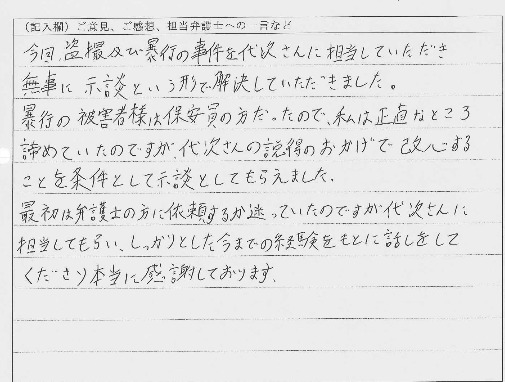 (記入欄)ご意見、ご感想、担当弁護士への 言など
今回、盗撮及び暴行の事件を代次さんに担当していただき
無事に示談という形で解決していただきました。
暴行の被害者様は保安員の方だったので、私は正直なところ
諦めていたのですが、代次さんの説得のおかげで改心する
ことを条件として示談としてもらえました。
最初は弁護士の方に依頼するか迷っていたのですが代次さんに
担当してもらい、しっかりとした今までの経験をもとに話しをして
くださり本当に感謝しております。